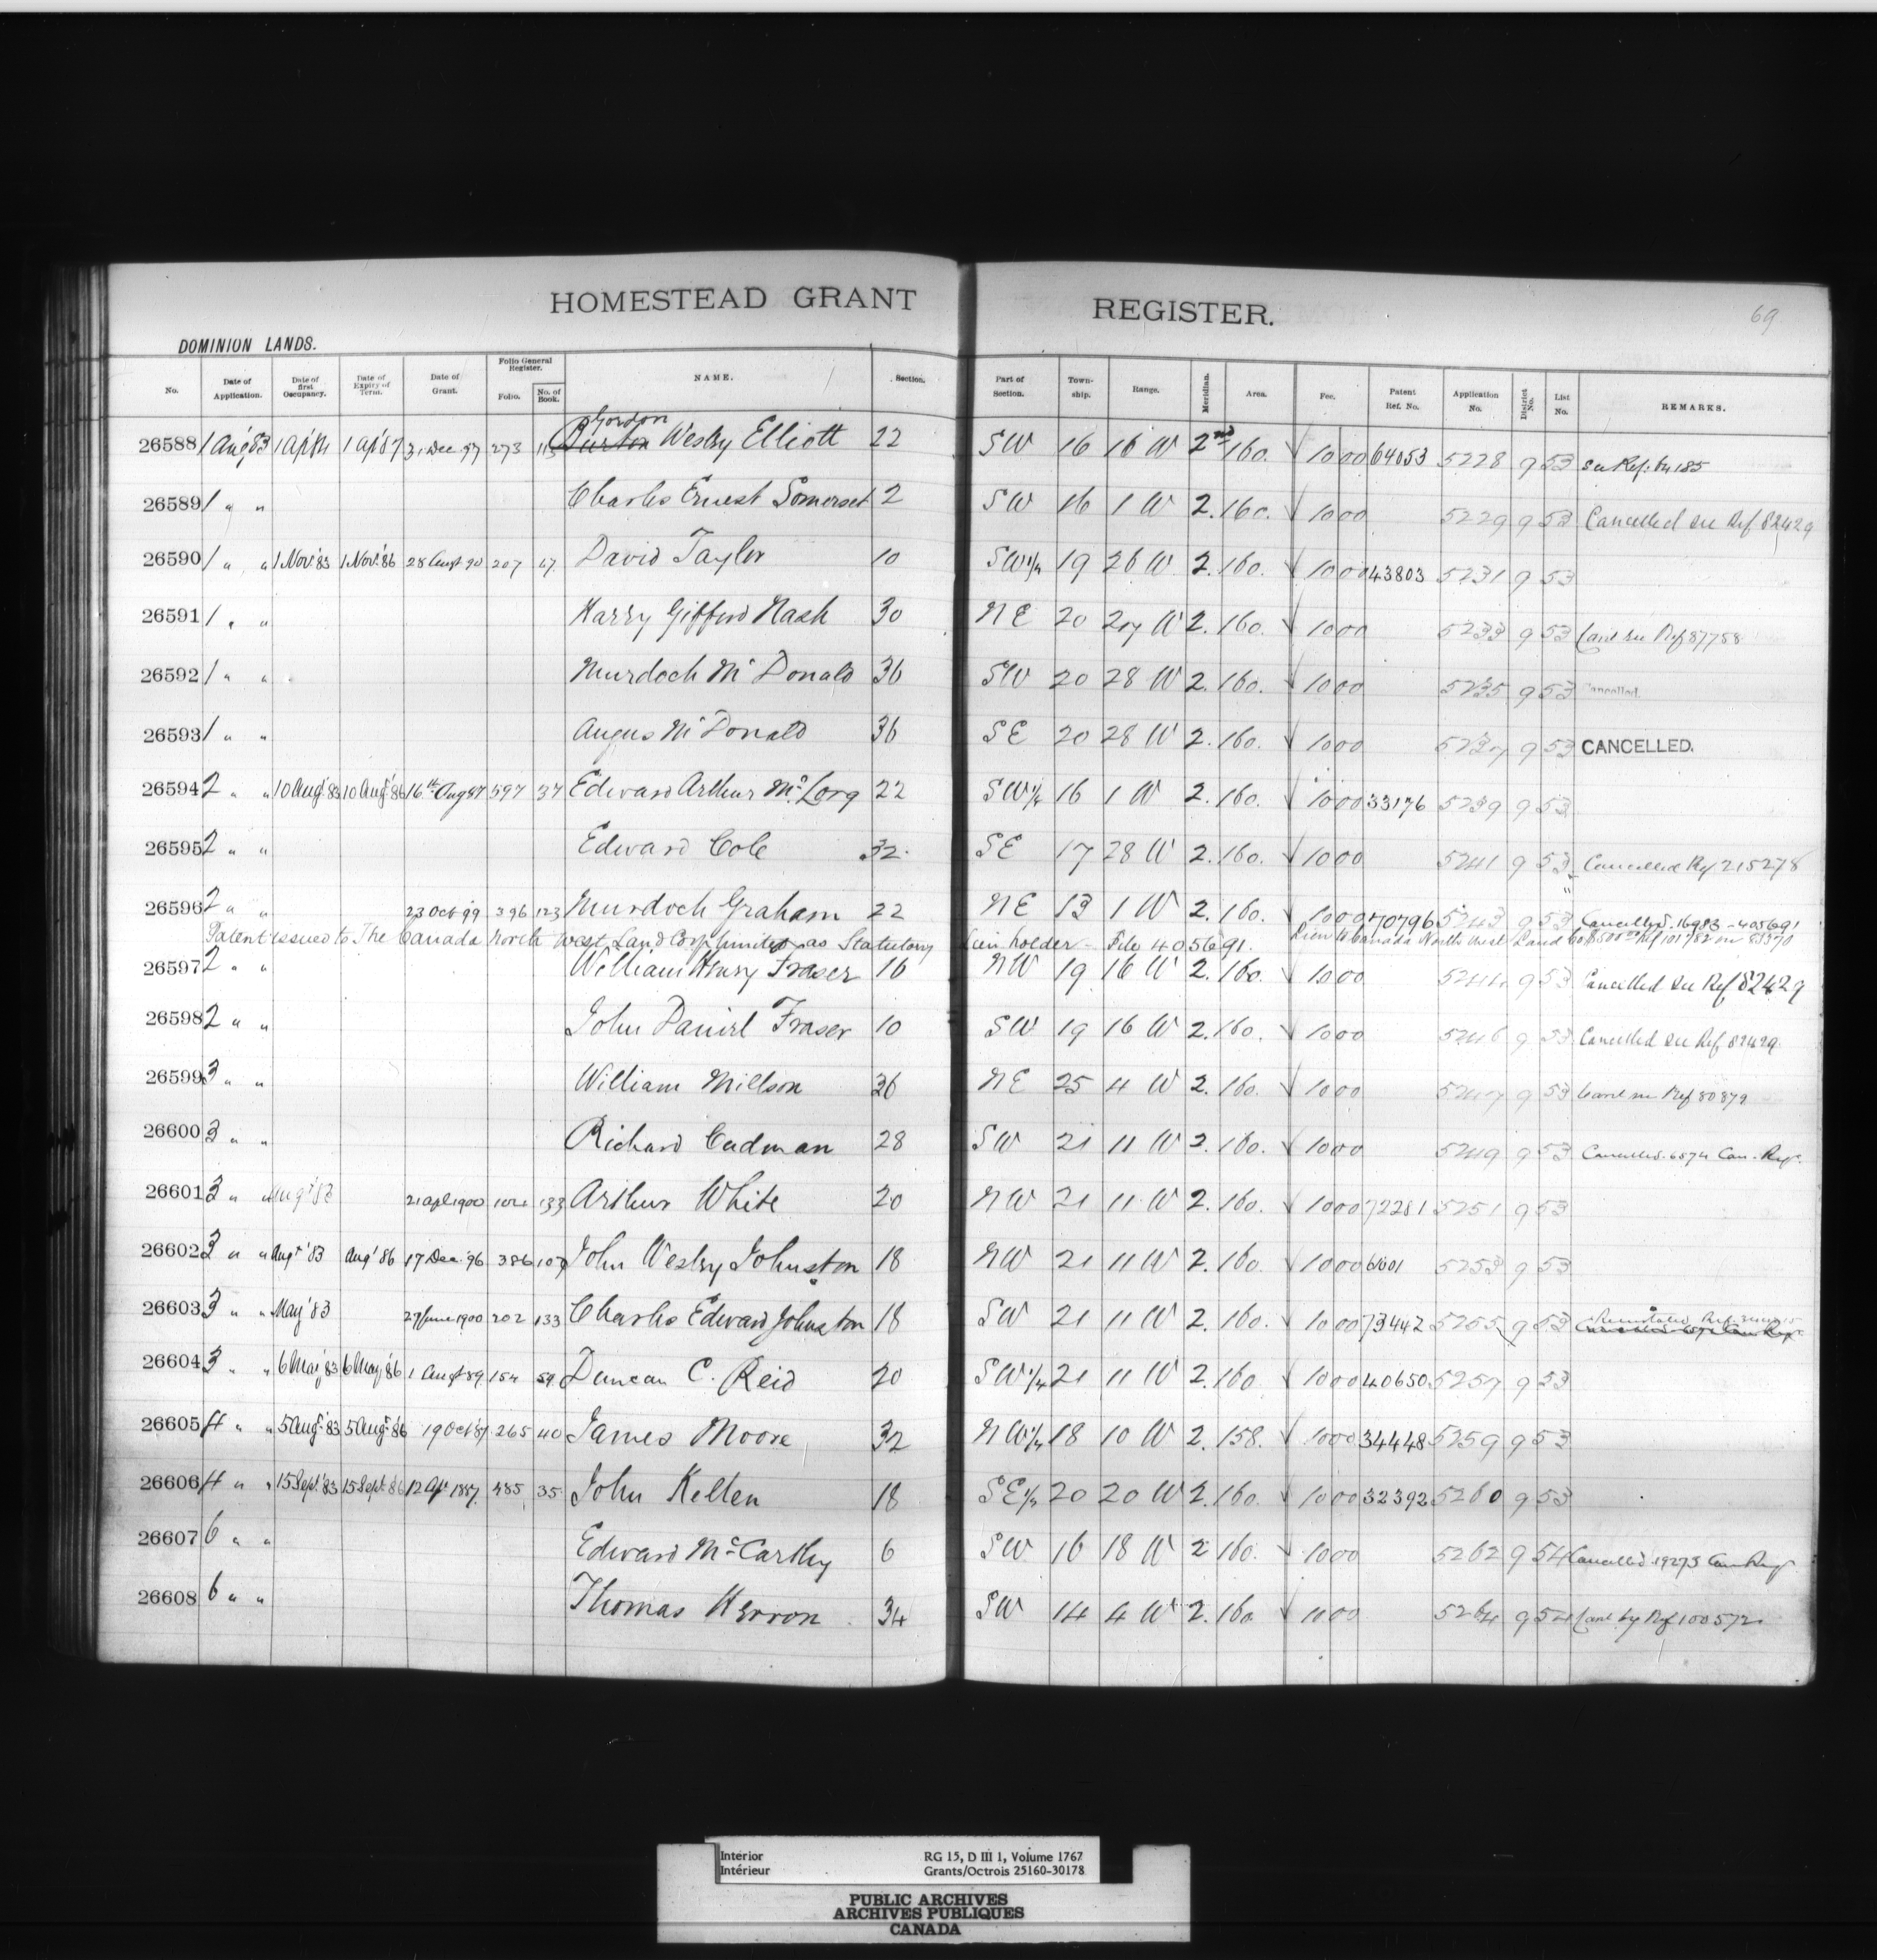 HOMESTEAD GRANT REGISTER.
69
DOMINION LANDS.
No. Date of Application. Date of first Occupancy. Date of Expiry of Term. Date of Grant. Folio General Register. Folio. No. of Book. NAME. Section. Part of Section. Township. Range. Meridian. Area. Fee. Patent Ref. No. Application No. District No. List No. REMARKS.
Gordon
26588 1 Aug 83 1 Apl 84 1 Apl 87 31 Dec 97 273 113 Burton Wesley Elliott 22 SW 16 16 W 2nd 160. 10 00 64053 5228 9 53 See Ref:
26589 1 " " Charles Ernest Somerset 2 SW 16 1 W 2. 160. 10 00 5229 9 53 Cancelled see Ref 82429
26590 1 " " 1 Nov. '83 1 Nov. '86 28 Augt 90 207 67 David Taylor 10 SW 1/4 19 26 W 2. 160. 10 00 43803 5231 9 53
26591 1 " " Harry Gifford Nash 30 NE 20 27 W 2. 160. 10 00 5233 9 53 Canc see Ref 87758
26592 1 " " Murdoch McDonald 36 SW 20 28 W 2. 160. 10 00 5235 9 53 Cancelled.
26593 1 " " Angus McDonald 36 SE 20 28 W 2. 160. 10 00 5237 9 53 CANCELLED.
26594 2 " " 10 Aug. '83 10 Aug. '86 16th Aug 87 597 37 Edward Arthur Mc. Lorg 22 SW 1/4 16 1 W 2. 160. 10 00 33176 5239 9 53
26595 2 " " Edward Cole 32. SE 17 28 W 2. 160. 10 00 5241 9 53 Cancelled Ref 215278
26596 2 " " 23 Oct 99 396 123 Murdoch Graham 22 NE 13 1 W 2. 160. 10 00 70796 5243 9 53 Cancelled. 16983 - 405691
Patent issued to The Canada North West Land Corp limited as Statutory Lien holder - File 405691. Lien to Canada North West Land Co
26597 2 " " William Henry Fraser 16 NW 19 16 W 2. 160. 10 00 5244 9 53 Cancelled see Ref 82429
26598 2 " " John Daniel Fraser 10 SW 19 16 W 2. 160. 10 00 5246 9 53 Cancelled see Ref 82429
26599 3 " " William Millson 36 NE 25 4 W 2. 160. 10 00 5247 9 53 Canc see Ref 80879
26600 3 " " Richard Cadman 28 SW 21 11 W 2. 160. 10 00 5249 9 53 Cancelled. 6574 Can. Reg.
26601 3 " " Augt '83 21 Apl 1900 104 133 Arthur White 20 NW 21 11 W 2. 160. 10 00 72281 5251 9 53
26602 3 " " Augt '83 Augt '86 17 Dec. 96 386 107 John Wesley Johnston 18 NW 21 11 W 2. 160. 10 00 5253 9 53
26603 3 " " May '83 27 June 1900 202 133 Charles Edward Johnston 18 SW 21 11 W 2. 160. 10 00 73442 5255 9 53 Reinstated Ref.
26604 3 " " 6 May '83 6 May '86 1 Augt 89 154 59 Duncan C. Reid 20 SW 1/4 21 11 W 2. 160 10 00 40650 5257 9 53
26605 4 " " 5 Aug. '83 5 Aug. '86 19 Oct 87 265 40 James Moore 32 NW 1/4 18 10 W 2. 158. 10 00 34448 5259 9 53
26606 4 " " 15 Sept. '83 15 Sept. 86 12 Apl 1887. 485 35 John Kellen 18 SE 1/4 20 20 W 2. 160. 10 00 32392 5260 9 53
26607 6 " " Edward McCarthy 6 SW 16 18 W 2 160. 10 00 5262 9 54 Cancelled 19273 Can Reg.
26608 6 " " Thomas Herron 34 SW 14 4 W 2. 160 10 00 5264 9 54 Canc by Ref 100572
Interior
Intérieur
RG 15, D III 1, Volume 1767
Grants/Octrois 25160-30178
PUBLIC ARCHIVES
ARCHIVES PUBLIQUES
CANADA